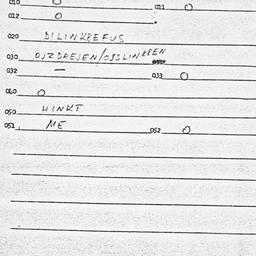 010 O 011 O
012 O
020 DILINKREFUS
030
032 — 033 O
040 O
050 HINKT
051 ME 052 O